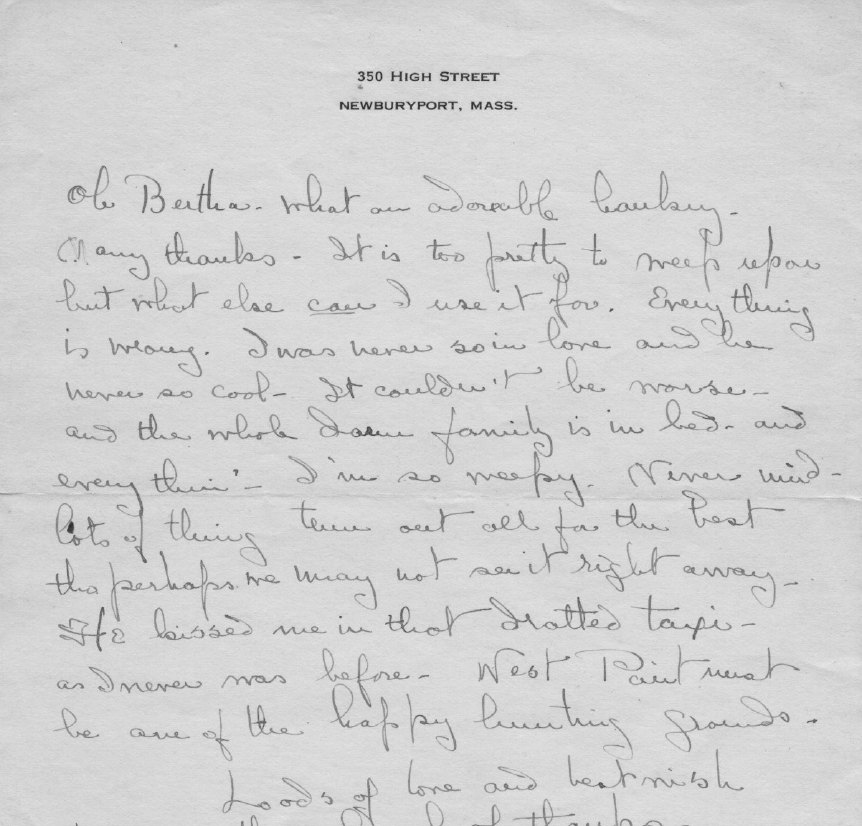 350 HIGH STREET
NEWBURYPORT, MASS.
Oh Bertha - What an adorable hanky -
Many thanks - It is too pretty to weep upon
but what else can I use it for. Everything
is wrong. I was never so in love and he
never so cool - It couldn't be worse -
and the whole darn family is in bed - and
every thin' - I'm so weepy. Never mind -
lots of thing turn out all for the best
tho perhaps we may not see it right away -
He kissed me in that dratted taxi -
as I never was before - West Point must
be one of the happy hunting grounds -
Loads of love and best wish
thanks -